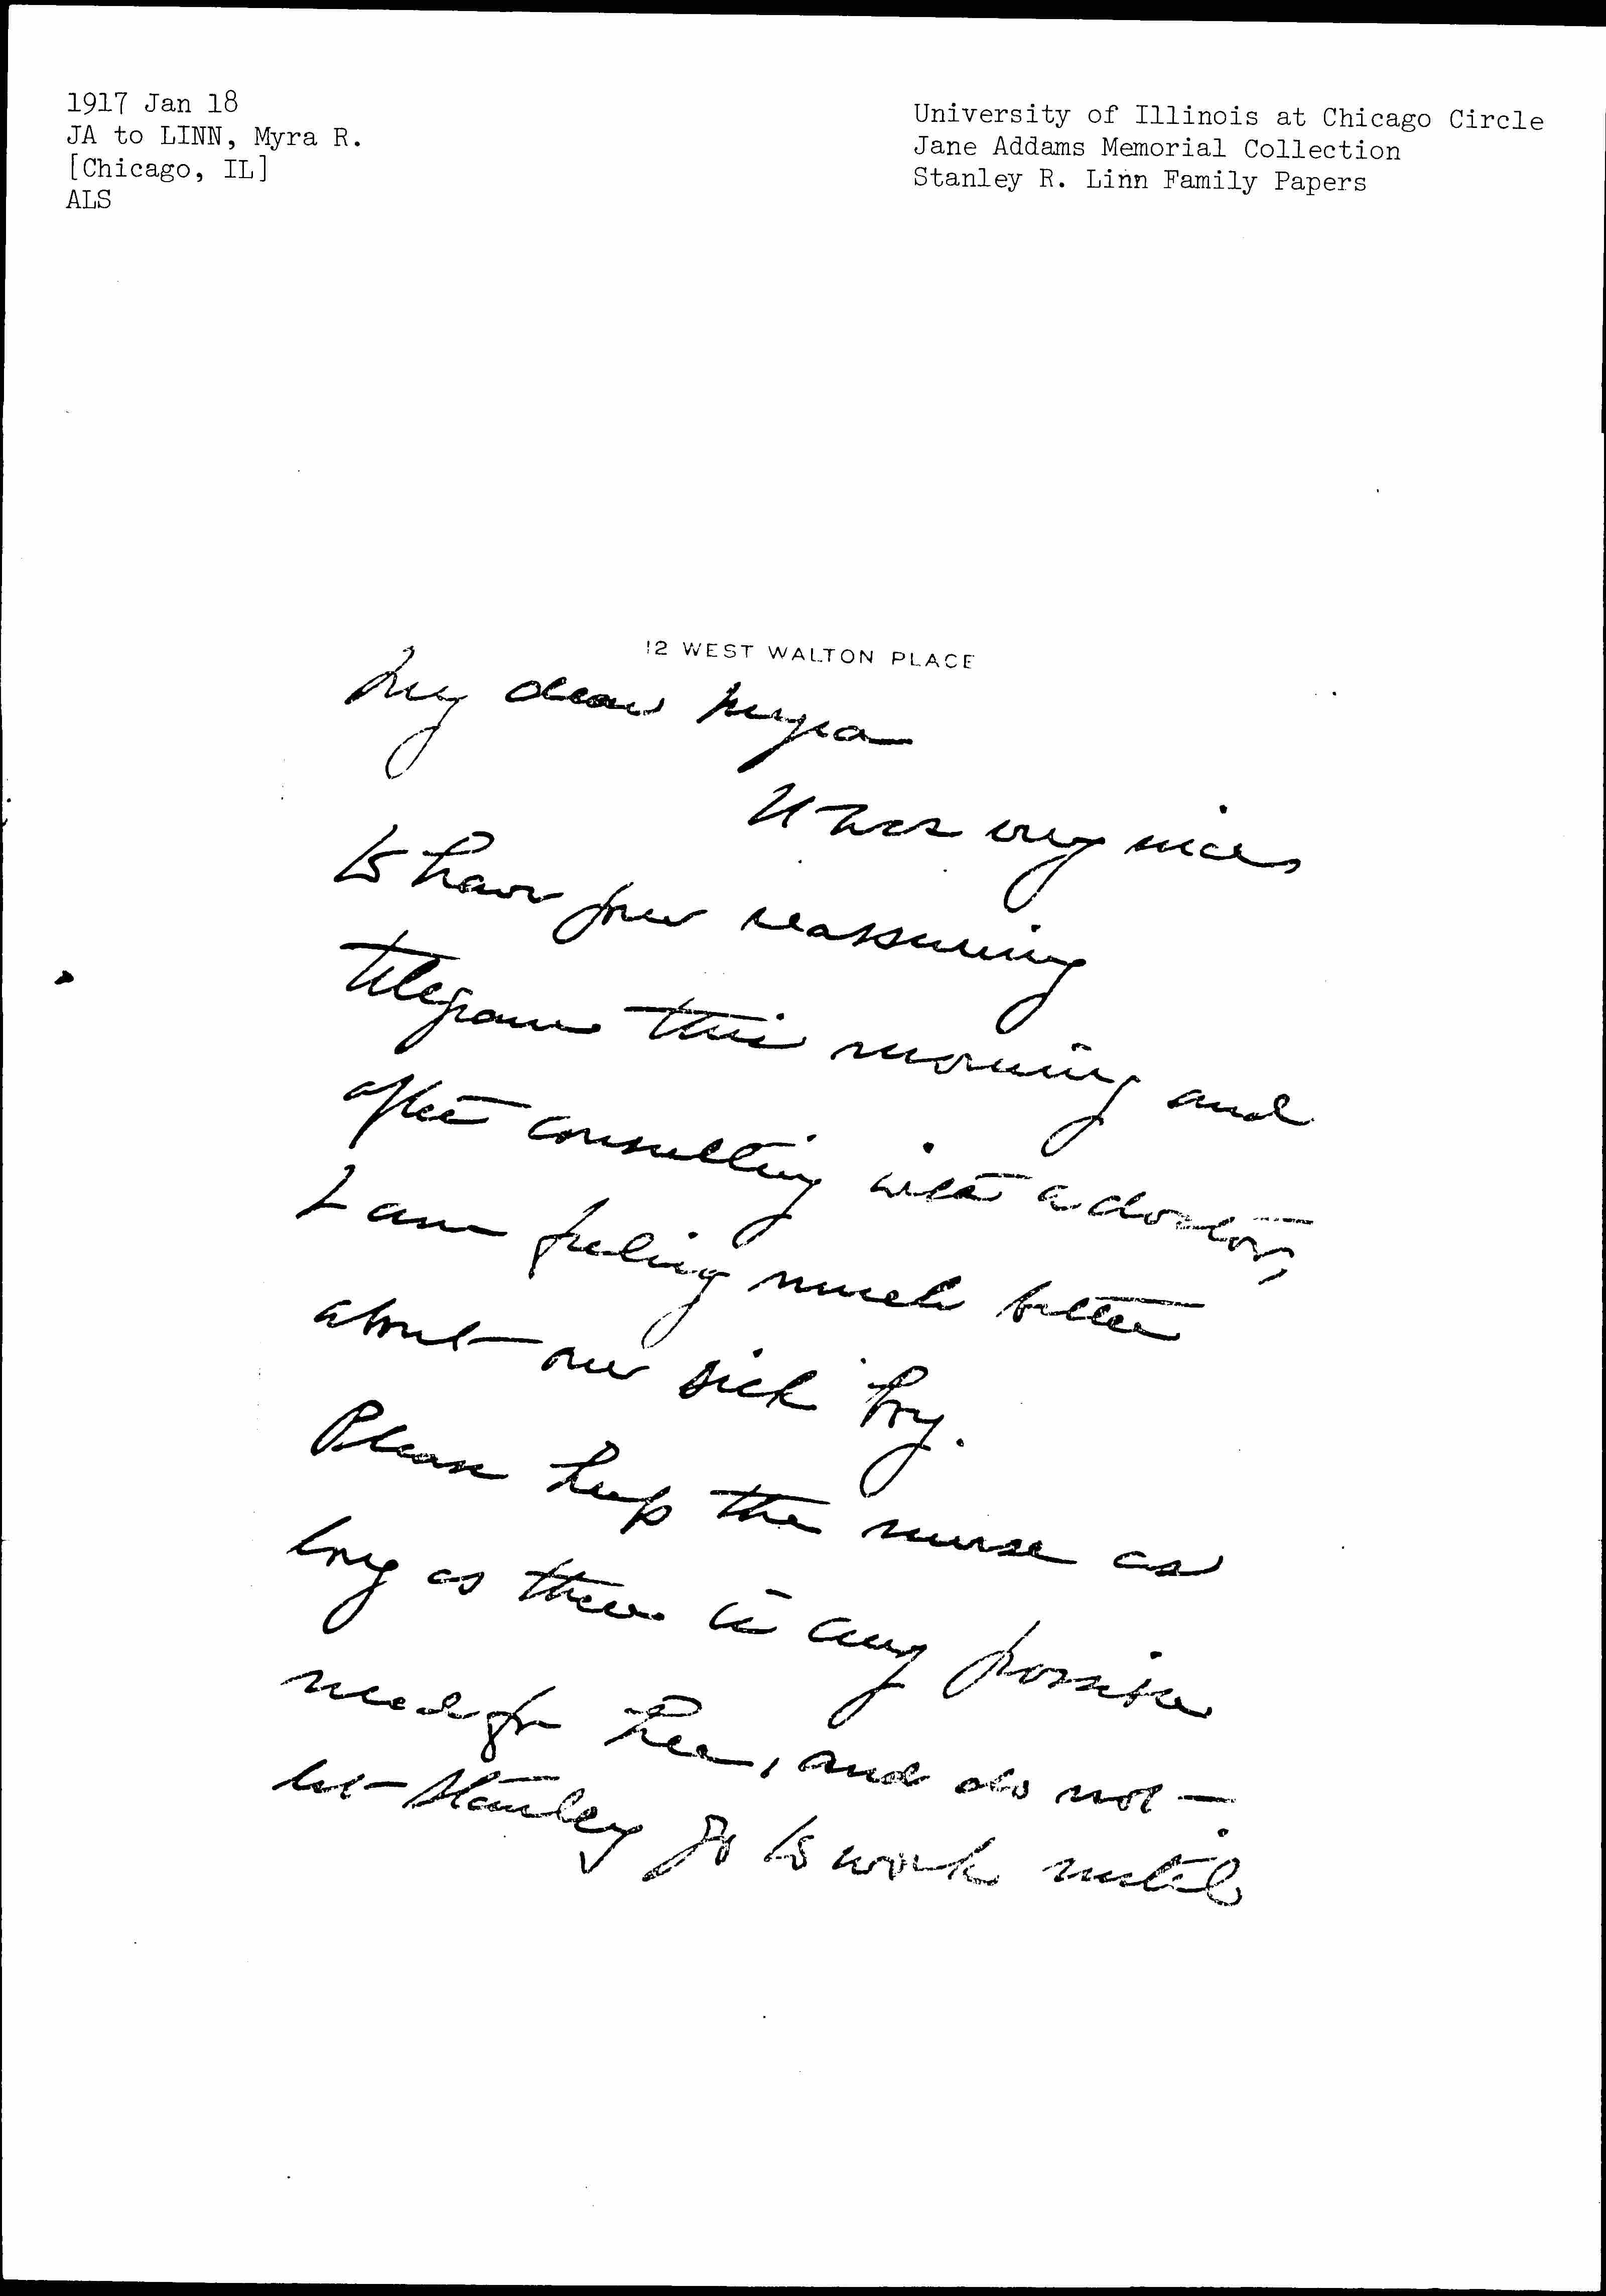 1917 Jan 18
JA to LINN, Myra R.
[Chicago, IL]
ALS
University of Illinois at Chicago Circle
Jane Addams Memorial Collection
Stanley R. Linn Family Papers
12 WEST WALTON PLACE
My dear Myra
It was very nice
to have your reassuring
telegram this morning and
after consulting with a doctor,
I am feeling much better
about our sick boy.
Please keep the nurse as
long as there is any possible
need for her, and do not
let Stanley go to work until